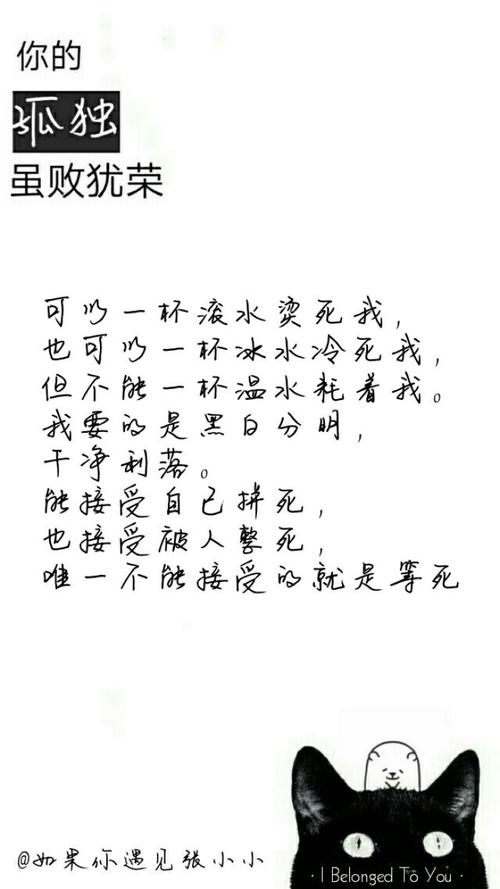 你的
孤独
虽败犹荣
可以一杯滚水烫死我，
也可以一杯冰水冷死我，
但不能一杯温水耗着我。
我要的是黑白分明，
干净利落。
能接受自己拼死，
也接受被人整死，
唯一不能接受的就是等死
@如果你遇见张小小
· I Belonged To You ·